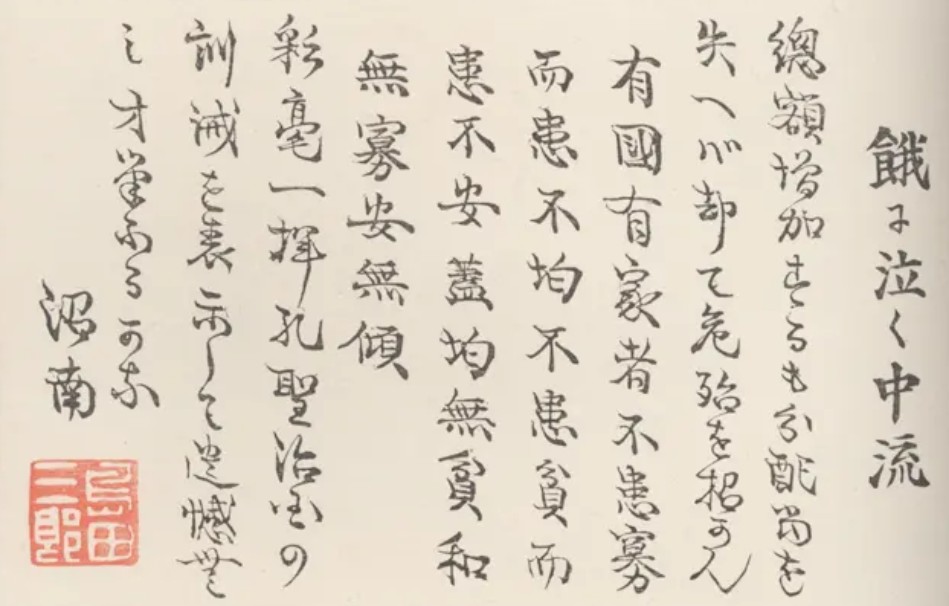 餓に泣く中流
總額増加するも分配當を
失へバ却て危殆を招かん
有國有家者不患寡
而患不均不患貧而
患不安蓋均無貧和
無寡安無傾
彩毫一揮孔聖治国の
訓誡を表示して遺憾無
之才筆なるかな
沼南
島田
三郎